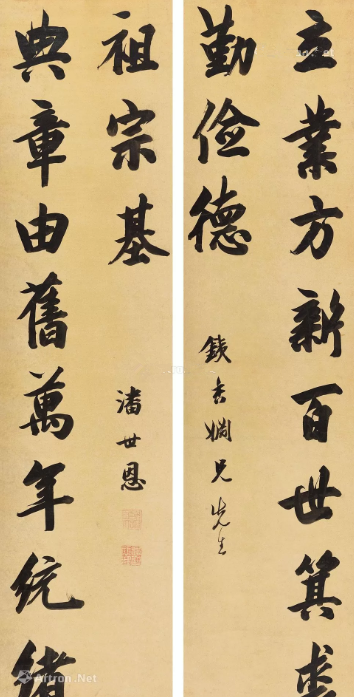 立業方新百世箕裘
勤儉德
銕香婣兄先生
典章由舊萬年統緒
祖宗基
潘世恩
Artron.Net